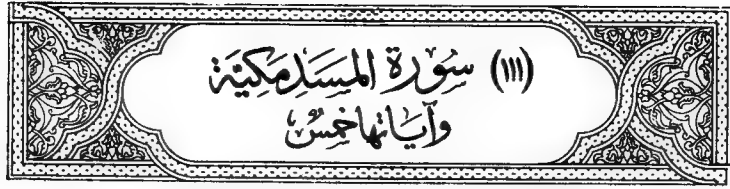 (١١١) سورة المسد مكية
وآياتها خمس